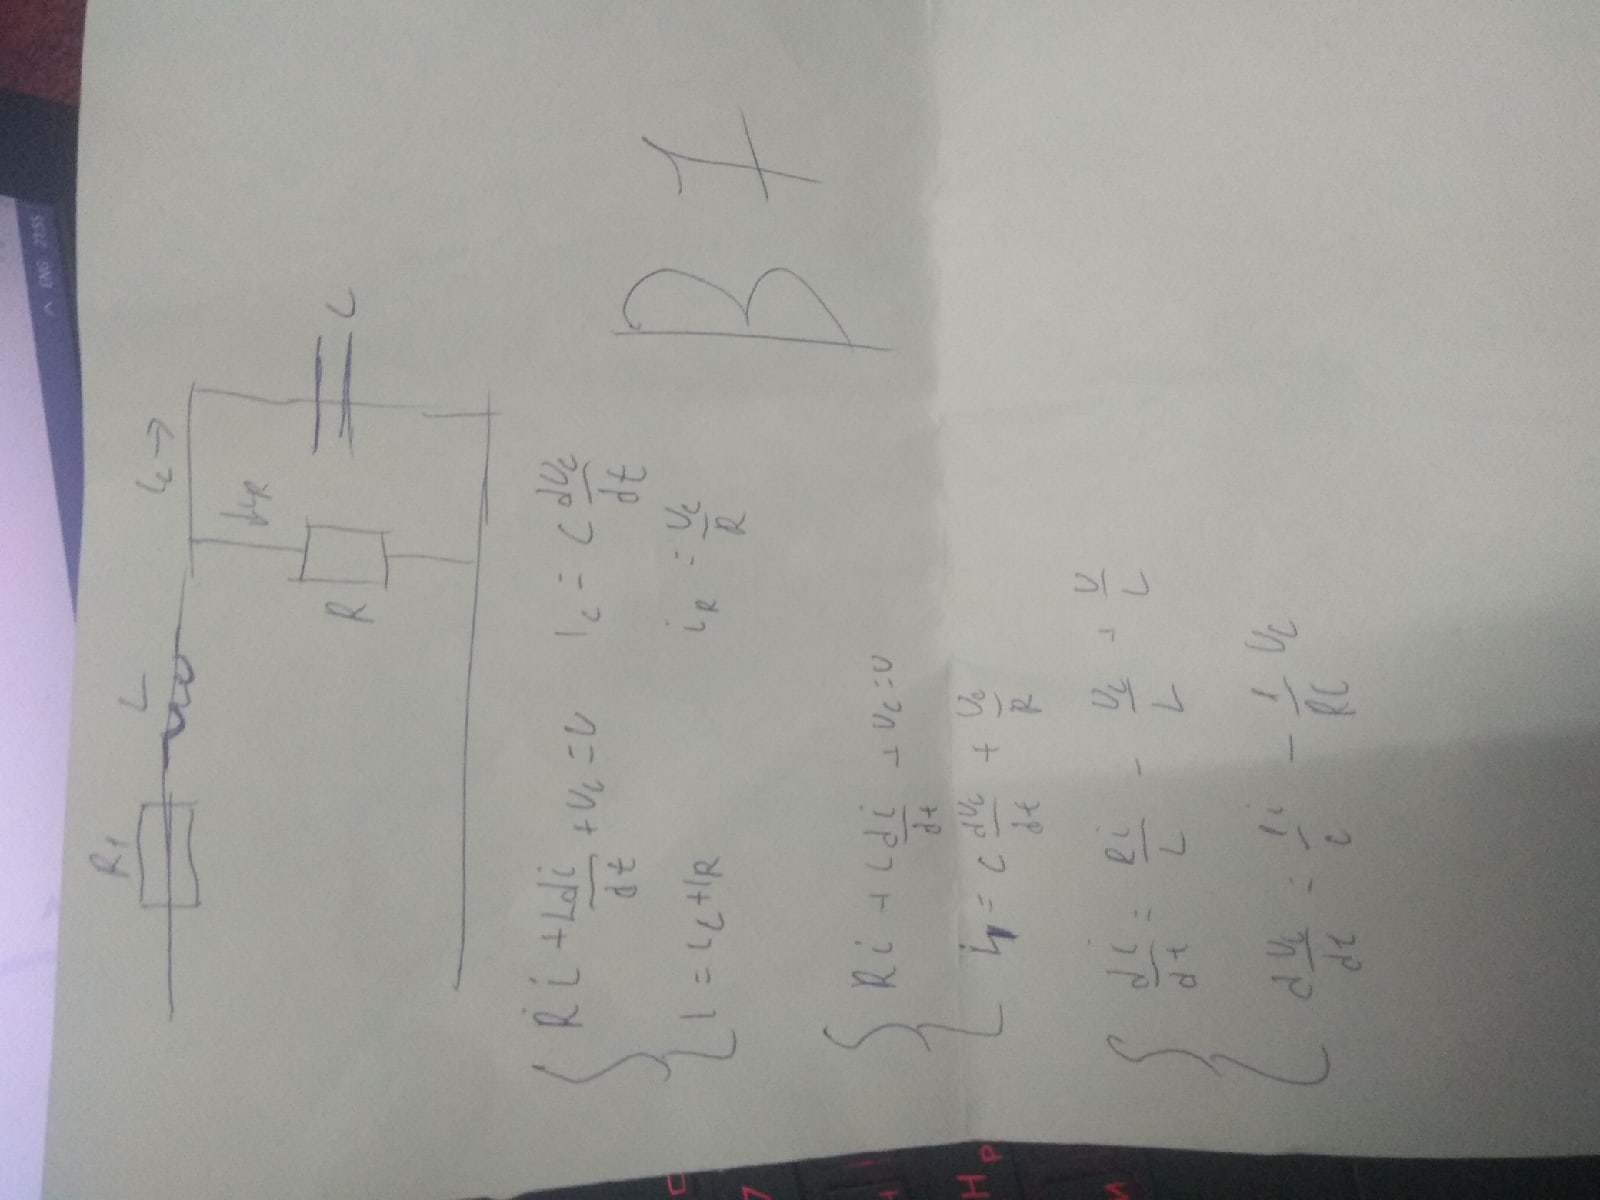 ENG 21:55
R1
L
ic →
↓ iR
R
C
Ri + L di/dt + Uc = U    ic = C dUc/dt
i = ic + iR    iR = Uc/R
B 7
Ri + L di/dt + Uc = U
i = C dUc/dt + Uc/R
di/dt = Ri/L - Uc/L + U/L
dUc/dt = 1/C i - 1/RC Uc
7
Н
Р
И